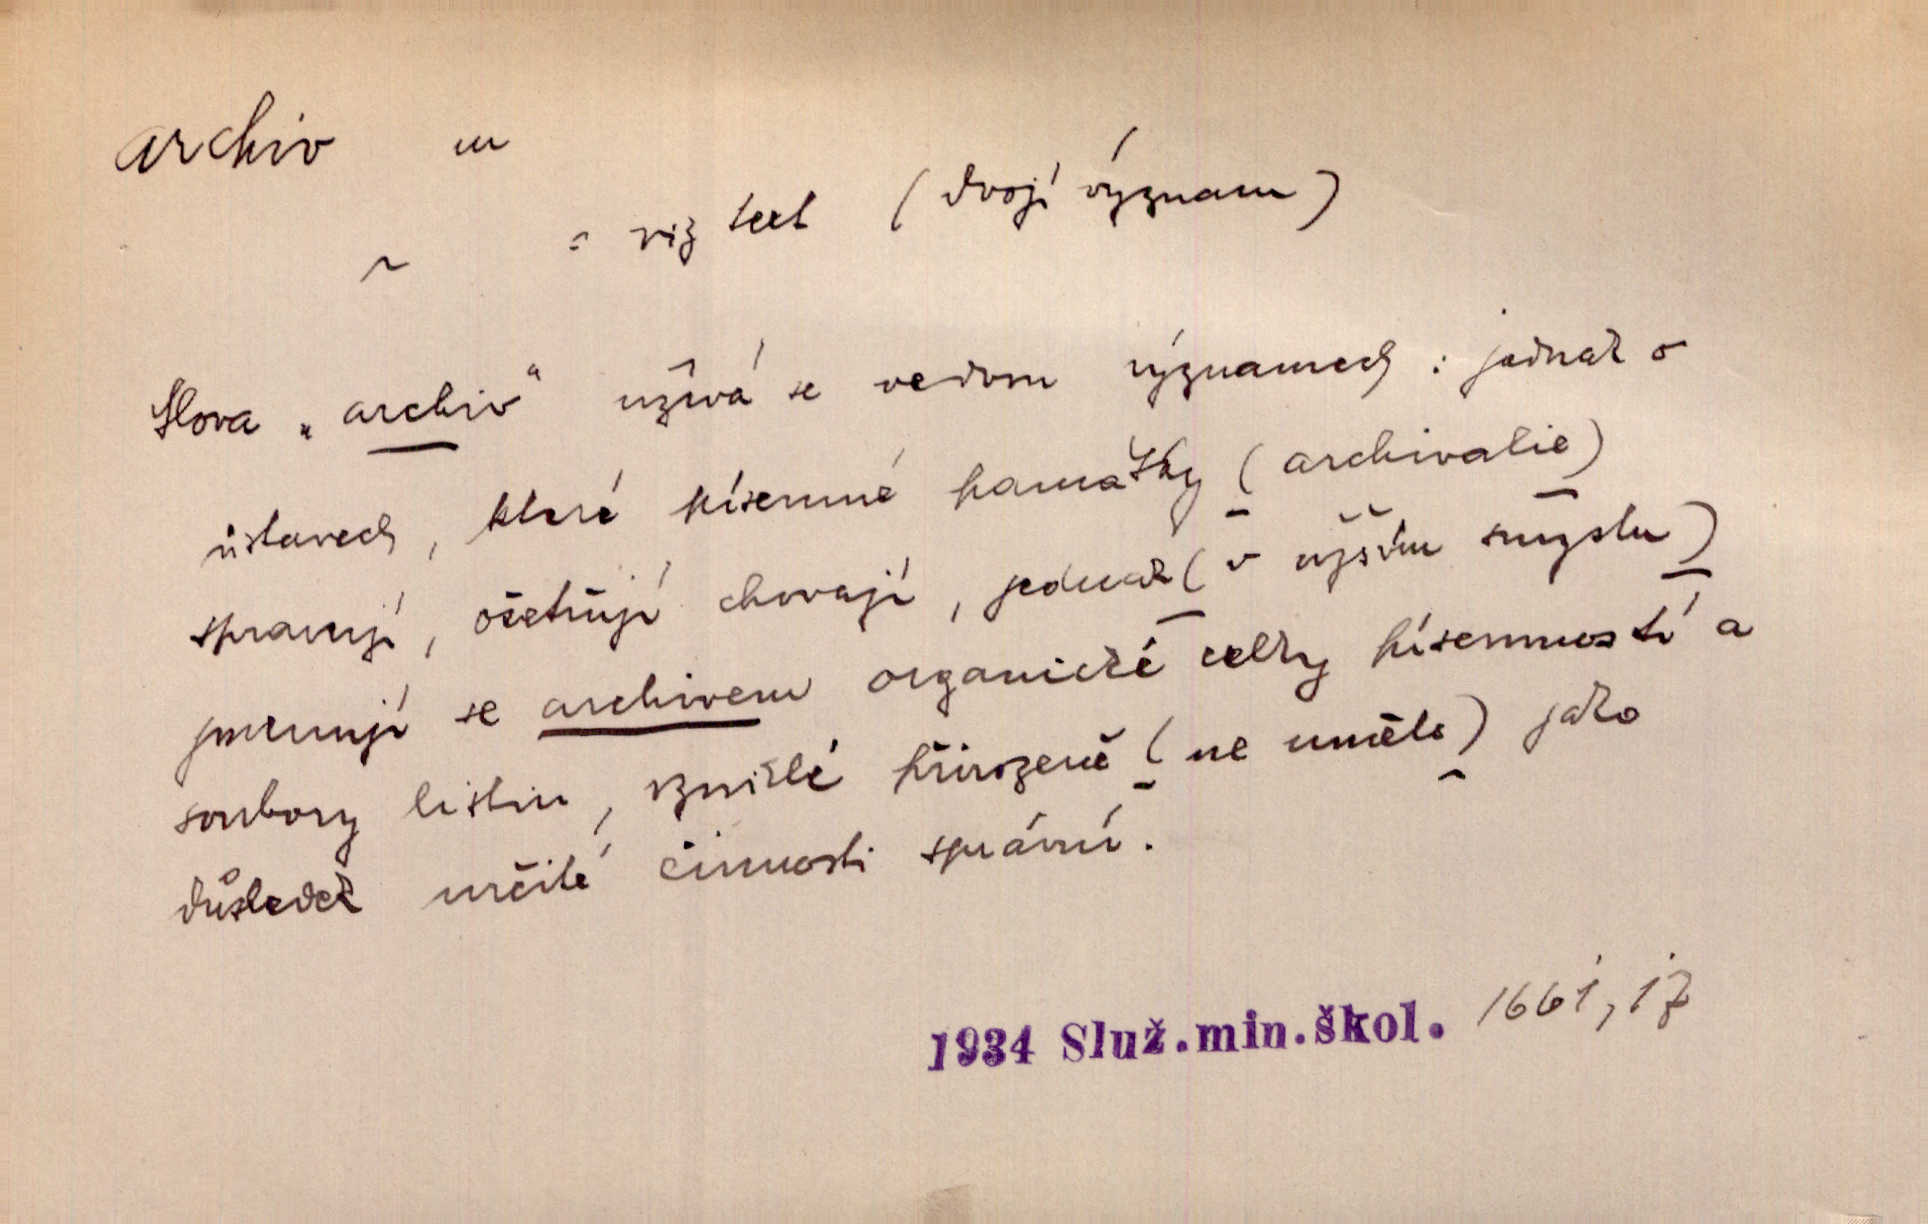 archiv m
~ = viz text (dvojí význam)
Slova „archiv“ užívá se ve dvou významech : jednak o
ústavech, které písemné památky (archivalie)
spravují, ošetřují chovají, jednak (v užším smyslu)
jmenují se archivem organické celky písemností a
soubory listin, vzniklé přirozeně (ne uměle) jako
důsledek určité činnosti správní.
1934 Služ.min.škol. 1661, 17